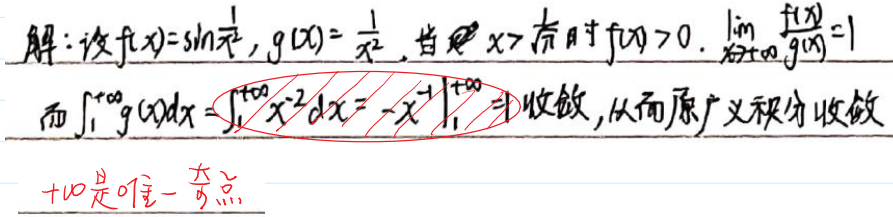 解：设f(x)=sin1/x², g(x)=1/x². 当 x>1/√π时f(x)>0. lim x→+∞ f(x)/g(x)=1
而∫₁⁺∞g(x)dx=∫₁⁺∞x⁻²dx=-x⁻¹|₁⁺∞=1收敛,从而原广义积分收敛
+∞是唯一奇点